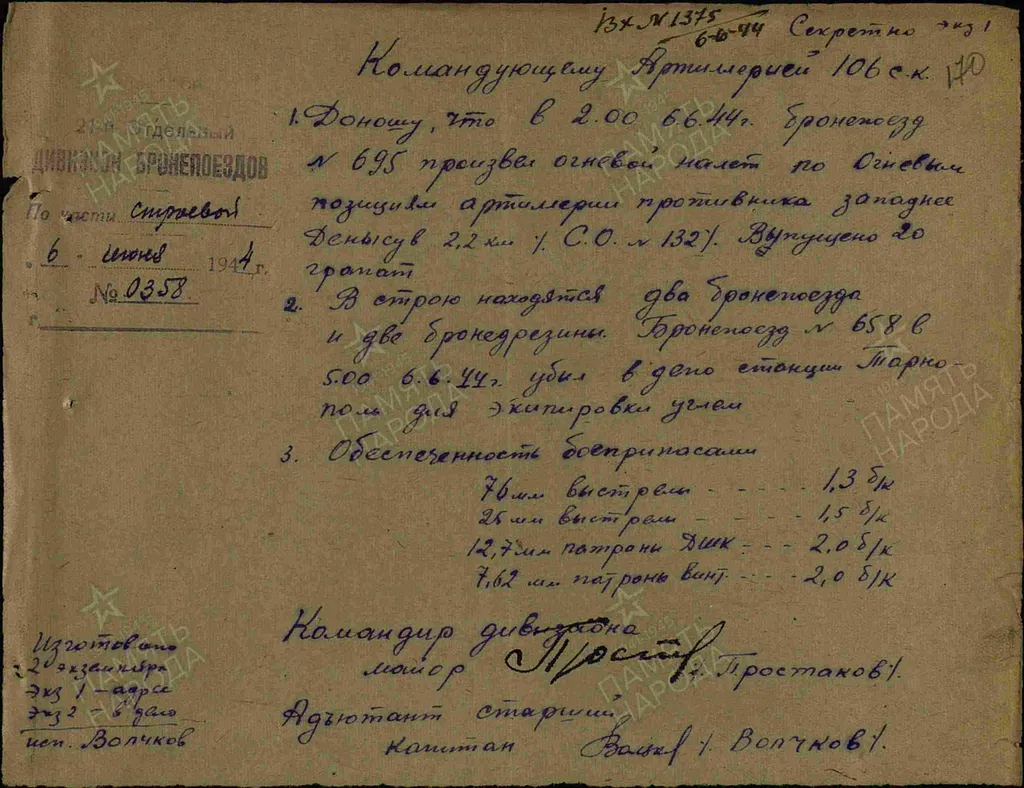 Вх № 1375
6-6-44
Секретно экз 1
170
Командующему Артиллерией 106 с.к.
21-й Отдельный
ДИВИЗИОН БРОНЕПОЕЗДОВ
По части строевой
6 июня 1944 г.
№ 0358
1. Доношу, что в 2.00 6.6.44г. бронепоезд
№ 695 произвел огневой налет по Огневым
позициям артиллерии противника западнее
Денысув 2,2 км /. С.О. № 132/. Выпущено 20
гранат
2. В строю находятся два бронепоезда
и две бронедрезины. Бронепоезд № 658 в
5.00 6.6.44г. убыл в депо станции Тарно-
поль для экипировки углем
3. Обеспеченность боеприпасами
76 мм выстрелы - - - - 1,3 б/к
25 мм выстрелы - - - - 1,5 б/к
12,7 мм патроны ДШК - - - 2,0 б/к
7,62 мм патроны винт. - - - 2,0 б/к
Командир дивизиона
майор Прост /. Простаков/.
Адъютант старший
капитан Волчков /. Волчков/.
Изготовлено
2 экземпляра
Экз 1 – адрес
Экз 2 – в дело
исп. Волчков
ПАМЯТЬ НАРОДА